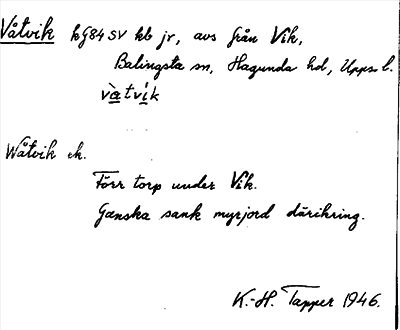 Våtvik kG84SV kb jr, avs från Vik,
Balingsta sn, Hagunda hd, Upps. l.
và̱tvi̱k
Wåtvik ek.
Förr torp under Vik.
Ganska sank myrjord däríkring.
K.-H. Tapper 1946.